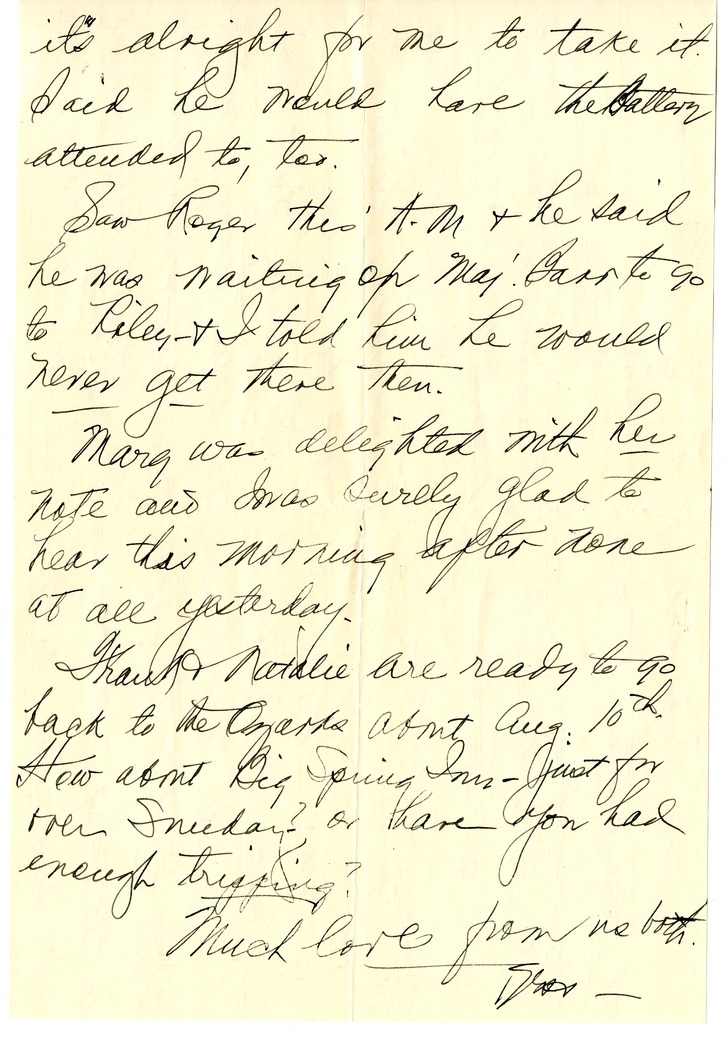 it's alright for me to take it.
Said he would have the Battery
attended to, too.
Saw Roger this A.M & he said
he was waiting on Maj. Barr to go
to Riley - & I told him he would
never get there then.
Marg was delighted with her
note and I was surely glad to
hear this morning after none
at all yesterday.
Frank & Natalie are ready to go
back to the Ozarks about Aug. 10th.
How about Big Spring Inn - just for
over Sunday? or have you had
enough tripping?
Much love from us both.